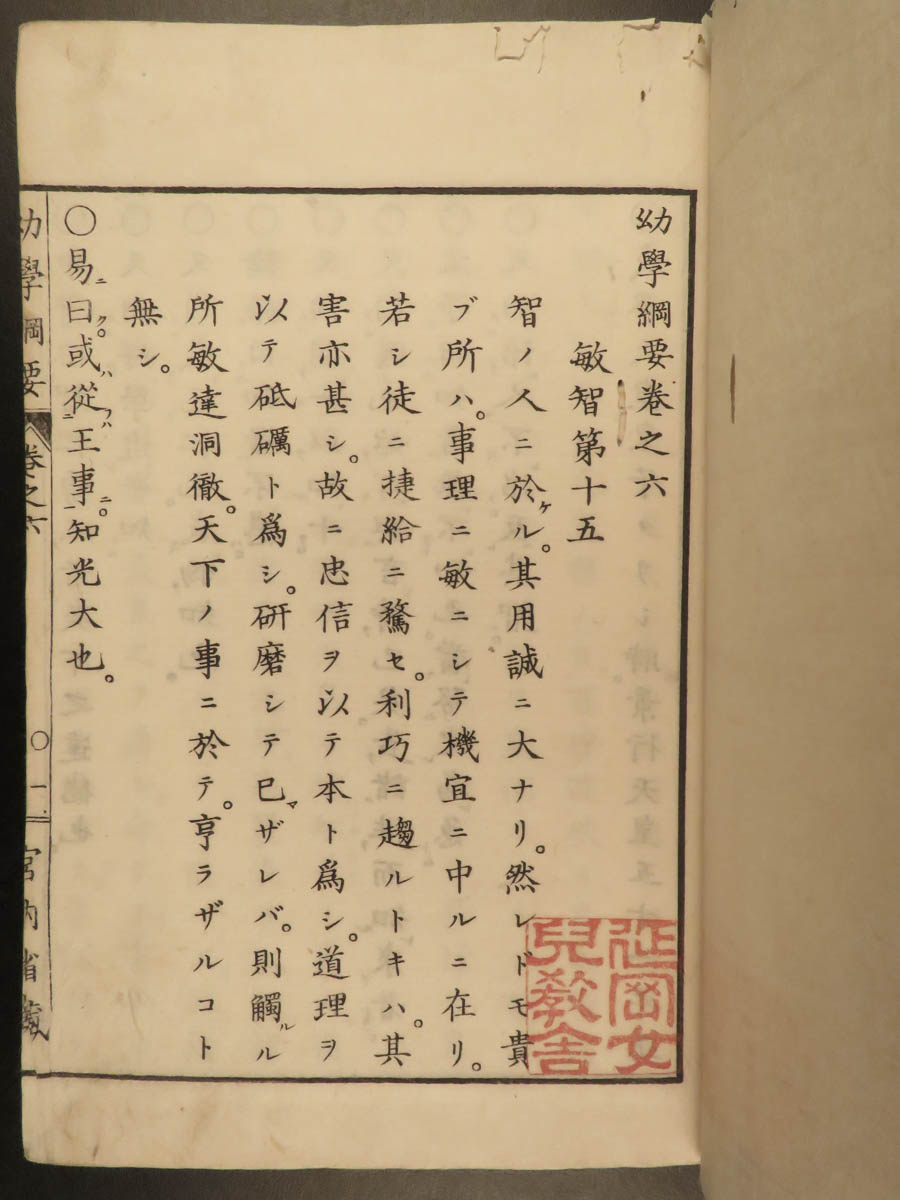 幼學綱要卷之六
敏智第十五
智ノ人ニ於ケル。其用誠ニ大ナリ。然レドモ貴
ブ所ハ。事理ニ敏ニシテ機宜ニ中ルニ在リ。
若シ徒ニ捷給ニ騖セ。利巧ニ趨ルトキハ。其
害亦甚シ。故ニ忠信ヲ以テ本ト爲シ。道理ヲ
以テ砥礪ト爲シ。研磨シテ已マザレバ。則觸ルル
所敏達洞徹。天下ノ事ニ於テ。亨ラザルコト
無シ。
〇易ニ曰ク。或ハ從フハ二王事一ニ。知光大也。
幼學綱要 卷之六 〇一 宮內省藏
延岡女
兒敎舍